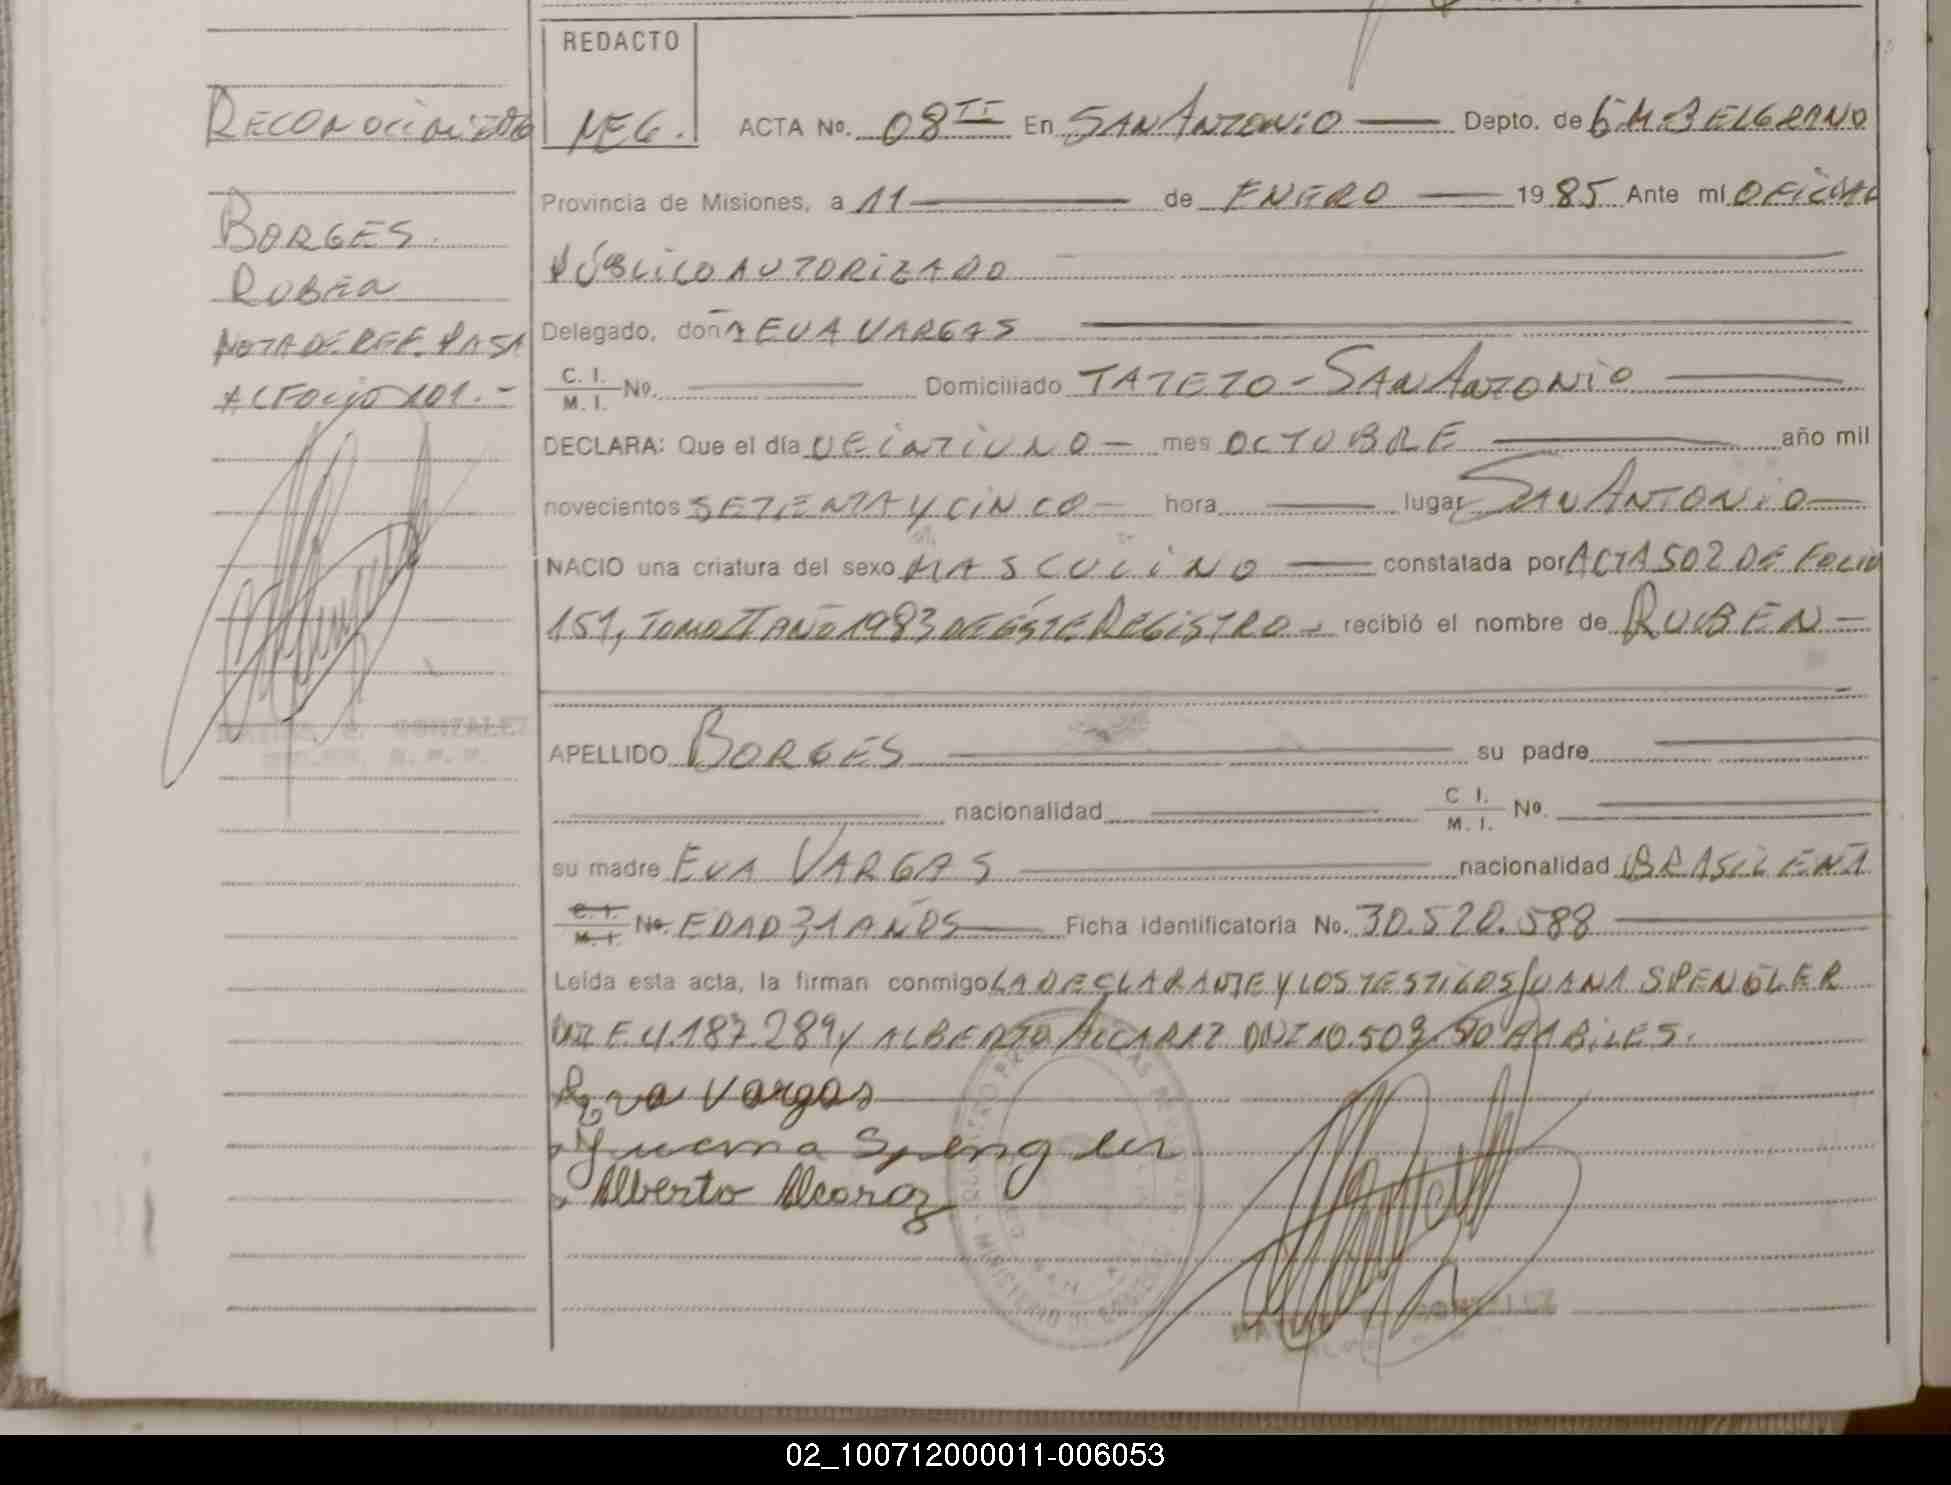 REDACTO
RECONOCIMIENTO
MEG. ACTA No. 08 TI En SAN ANTONIO Depto. de G.M.BELGRANO
BORGES.
RUBEN
NOTA DE REF. PASA
AL FOLIO 101.-
Provincia de Misiones, a 11 de ENERO 1985 Ante mí OFICIAL
PÚBLICO AUTORIZADO
Delegado, doña EVA VARGAS
C. I.
M. I. No. Domiciliado TATETO - SAN ANTONIO
DECLARA: Que el día VEINTIUNO - mes OCTUBRE año mil
novecientos SETENTA Y CINCO - hora lugar SAN ANTONIO
NACIO una criatura del sexo MASCULINO constatada por ACTA 502 DE FOLIO
151, TOMO II AÑO 1983 DE ÉSTE REGISTRO - recibió el nombre de RUBEN -
GONZALEZ
APELLIDO BORGES su padre
nacionalidad C I.
M. I. No.
su madre EVA VARGAS nacionalidad BRASILEÑA
C. I.
M. I. No. EDAD 31 AÑOS Ficha identificatoria No. 30.520.588
Leída esta acta, la firman conmigo LA DECLARANTE Y LOS TESTIGOS JUANA SPENGLER
DNI F.4.187.289 y ALBERTO ALCARAZ DNI 10.503. HABILES.
Eva Vargas
Juana Spengler
Alberto Alcaraz
02_100712000011-006053